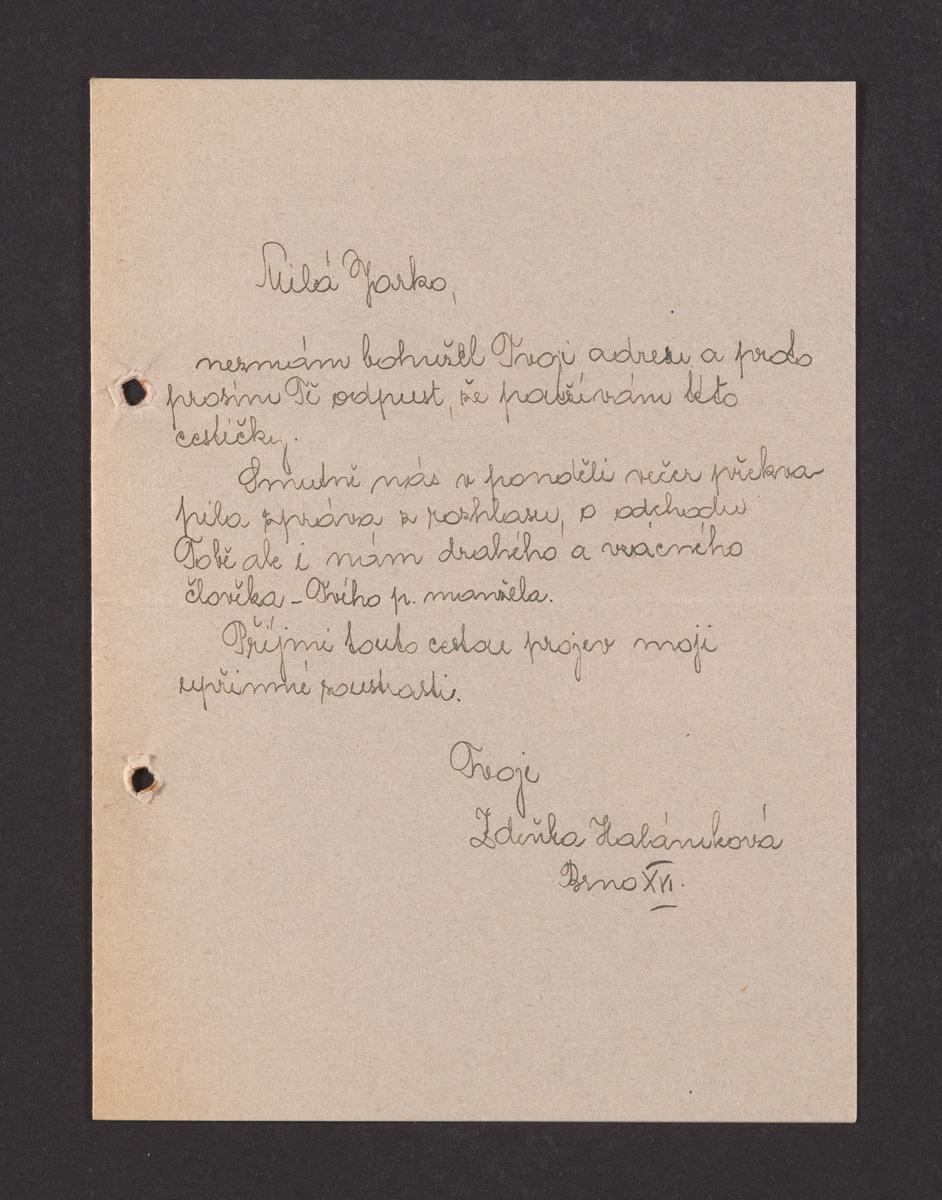 Milá Jarko,
neznám bohužel Tvoji adresu a proto
prosím Tě odpusť, že používám této
cestičky.
Smutně nás v pondělí večer překva-
pila zpráva z rozhlasu, o odchodu
Tobě ale i nám drahého a vzácného
člověka - Tvého p. manžela.
Přijmi touto cestou projev mojí
upřimné soustrasti.
Tvoje
Zdeňka
Brno XVI.